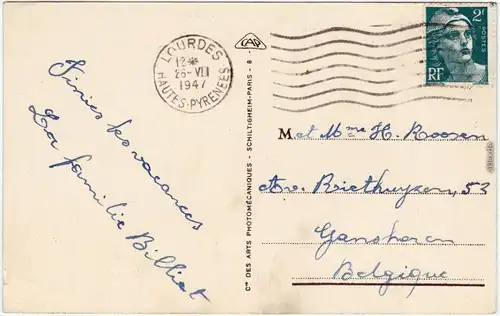 LOURDES
12H
26-VII
1947
HAUTES-PYRENEES
CAP
2F
POSTES
RF
Finies les vacances
La famille Billiet
Cie DES ARTS PHOTOMÉCANIQUES - SCHILTIGHEIM-PARIS - 8
M et Mme H. Roosen
Av. Briethuyzen, 53
Ganshoren
Belgique